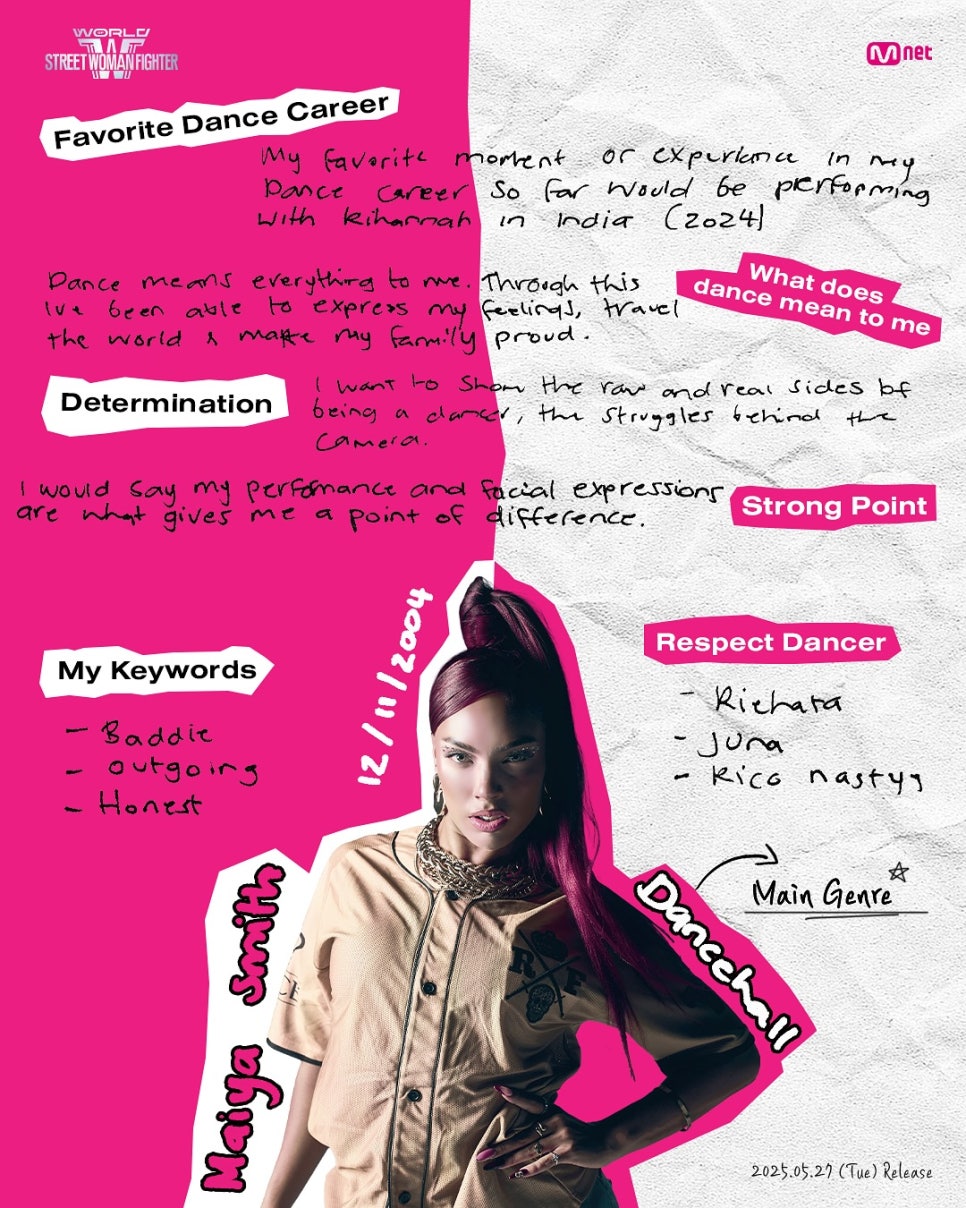 WORLD
W
STREET WOMAN FIGHTER
Mnet
Favorite Dance Career
My favorite moment or experience in my
Dance career so far would be performing
with Rihannah in India (2024)
What does
dance mean to me
Dance means everything to me. Through this
Ive been able to express my feelings, travel
the world & make my family proud.
Determination
I want to show the raw and real sides of
being a dancer, the struggles behind the
camera.
Strong Point
I would say my perfomance and facial expressions
are what gives me a point of difference.
12/11/2004
My Keywords
- Baddie
- outgoing
- Honest
Respect Dancer
- Riehata
- Juna
- Rico nastyy
Main Genre
Dancehall
Maiya Smith
R F
2025.05.27 (Tue) Release